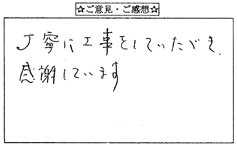 ☆ご意見・ご感想☆
丁寧に工事をしていただき、
感謝しています